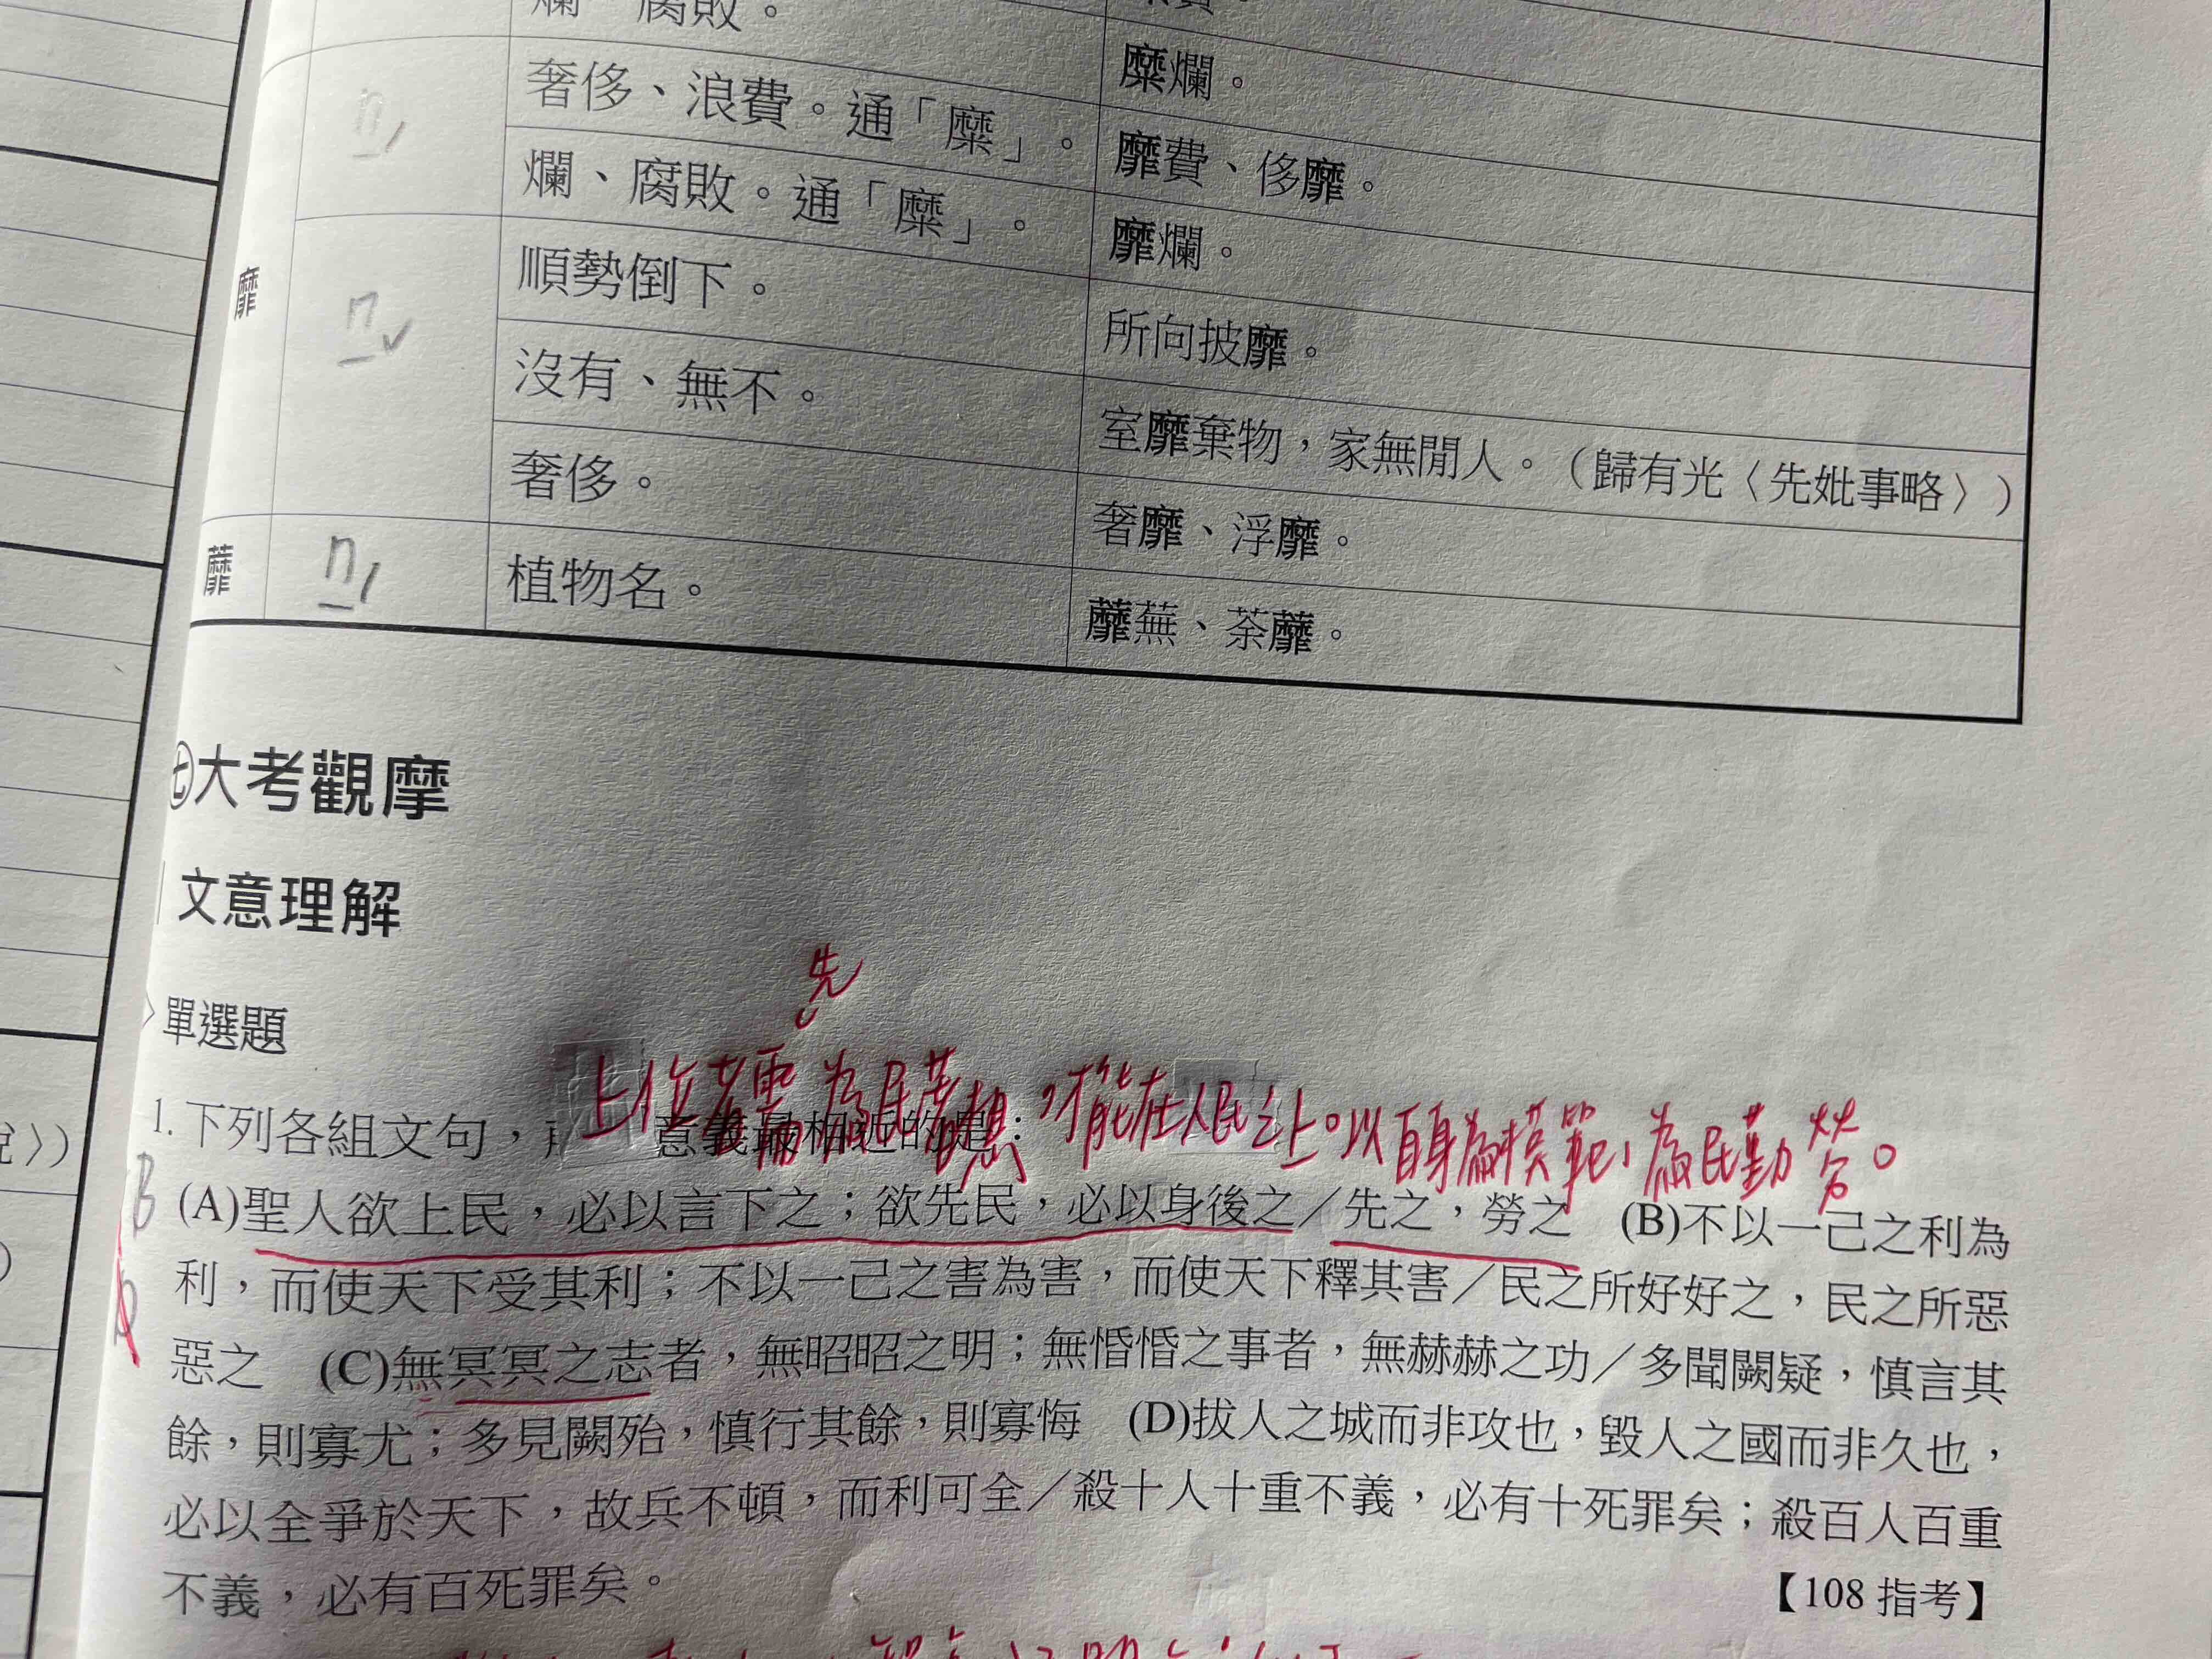 爛、腐敗。
糜爛。
奢侈、浪費。通「糜」。 靡費、侈靡。
爛、腐敗。通「糜」。 靡爛。
靡
順勢倒下。 所向披靡。
沒有、無不。 室靡棄物，家無閒人。（歸有光〈先妣事略〉）
奢侈。 奢靡、浮靡。
蘼 植物名。 蘼蕪、荼蘼。
㊆大考觀摩
文意理解
單選題
先
上位者需為民著想，才能在人民之上。以自身為模範，為民勤勞。
1. 下列各組文句，意義最相近的是：
B
(A)聖人欲上民，必以言下之；欲先民，必以身後之／先之，勞之 (B)不以一己之利為
利，而使天下受其利；不以一己之害為害，而使天下釋其害／民之所好好之，民之所惡
惡之 (C)無冥冥之志者，無昭昭之明；無惛惛之事者，無赫赫之功／多聞闕疑，慎言其
餘，則寡尤；多見闕殆，慎行其餘，則寡悔 (D)拔人之城而非攻也，毀人之國而非久也，
必以全爭於天下，故兵不頓，而利可全／殺十人十重不義，必有十死罪矣；殺百人百重
不義，必有百死罪矣。 【108 指考】